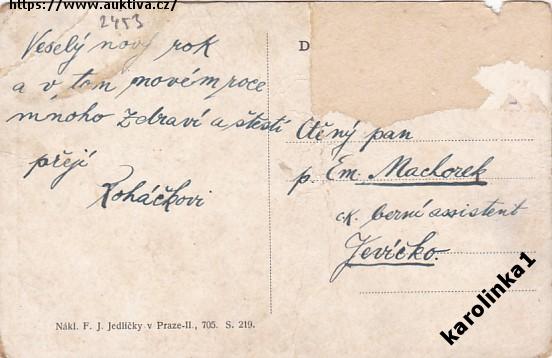 https://www.auktiva.cz/
2453
Veselý nový rok
a v tom novém roce
mnoho zdraví a štěstí
přejí
Roháčkovi
D
Ctěný pan
p. Em. Machorek
ck. berní assistent
Jevíčko.
Nákl. F. J. Jedličky v Praze-II., 705. S. 219.
karolinka1